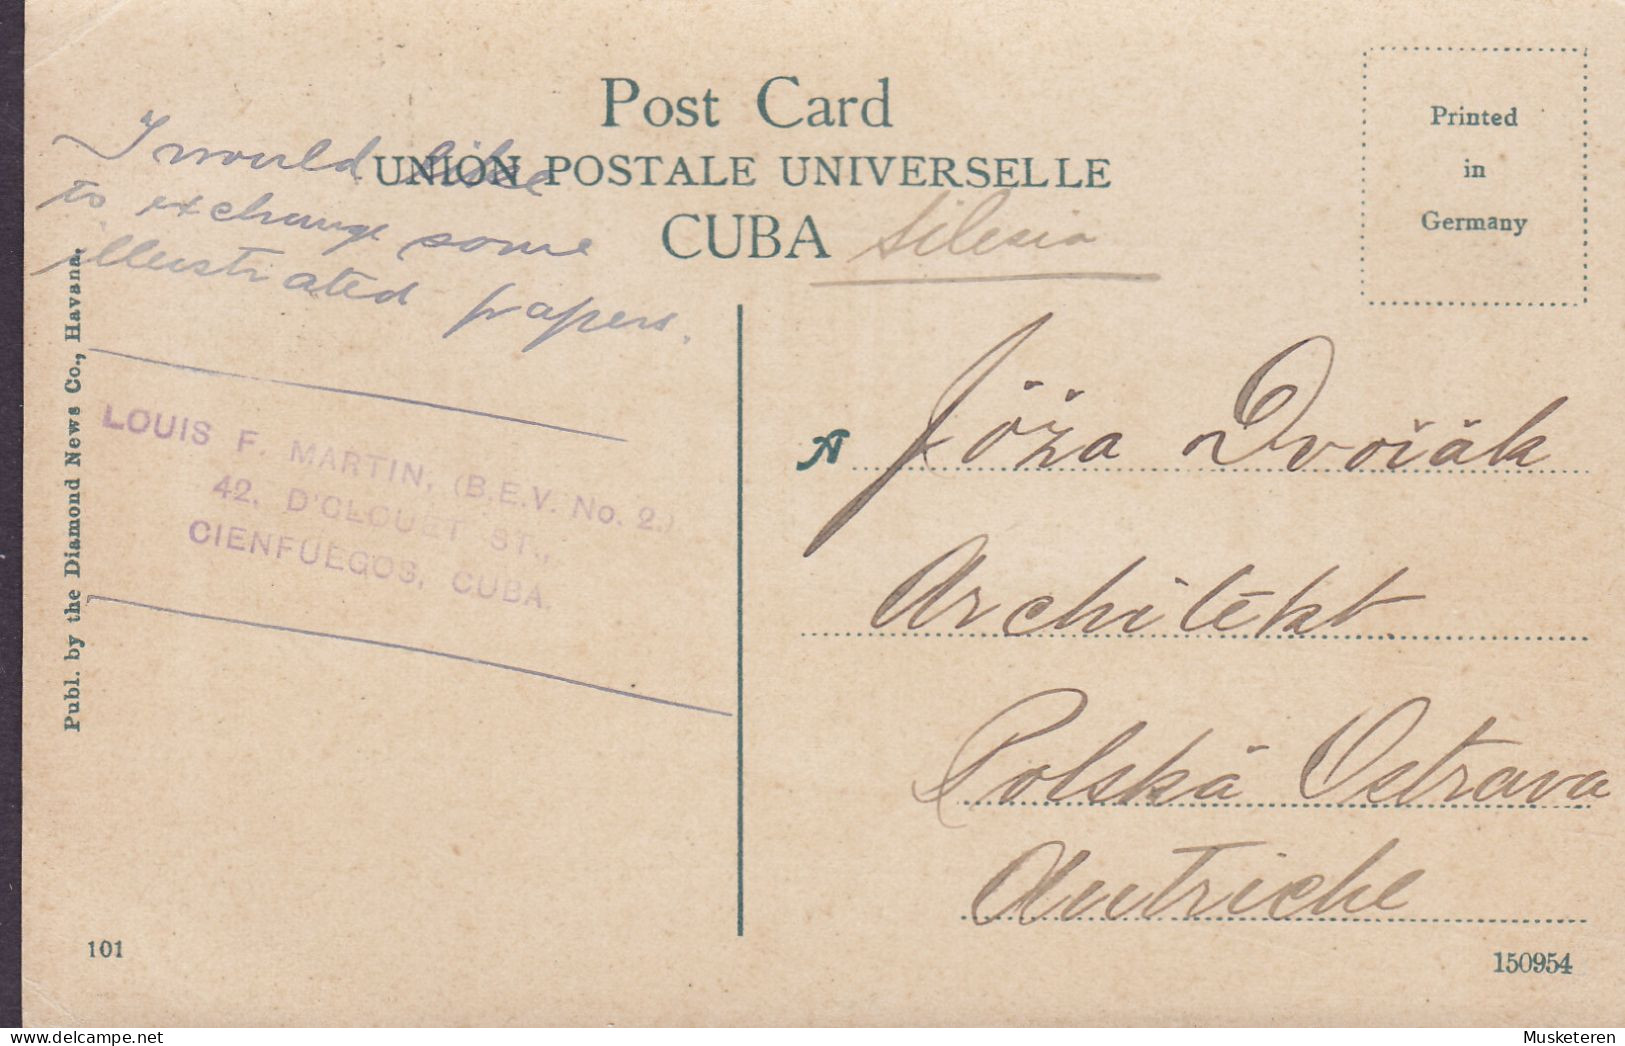 Post Card
UNION POSTALE UNIVERSELLE
CUBA Silesia
Printed
in
Germany
I would like
to exchange some
illustrated papers.
LOUIS F. MARTIN, (B.E.V. No. 2.)
42, D'CLOUET ST.,
CIENFUEGOS, CUBA.
Publ. by the Diamond News Co., Havana.
A Jöža Dvořák
Architekt.
Polská Ostrava
Autriche
101
150954
Musketeren